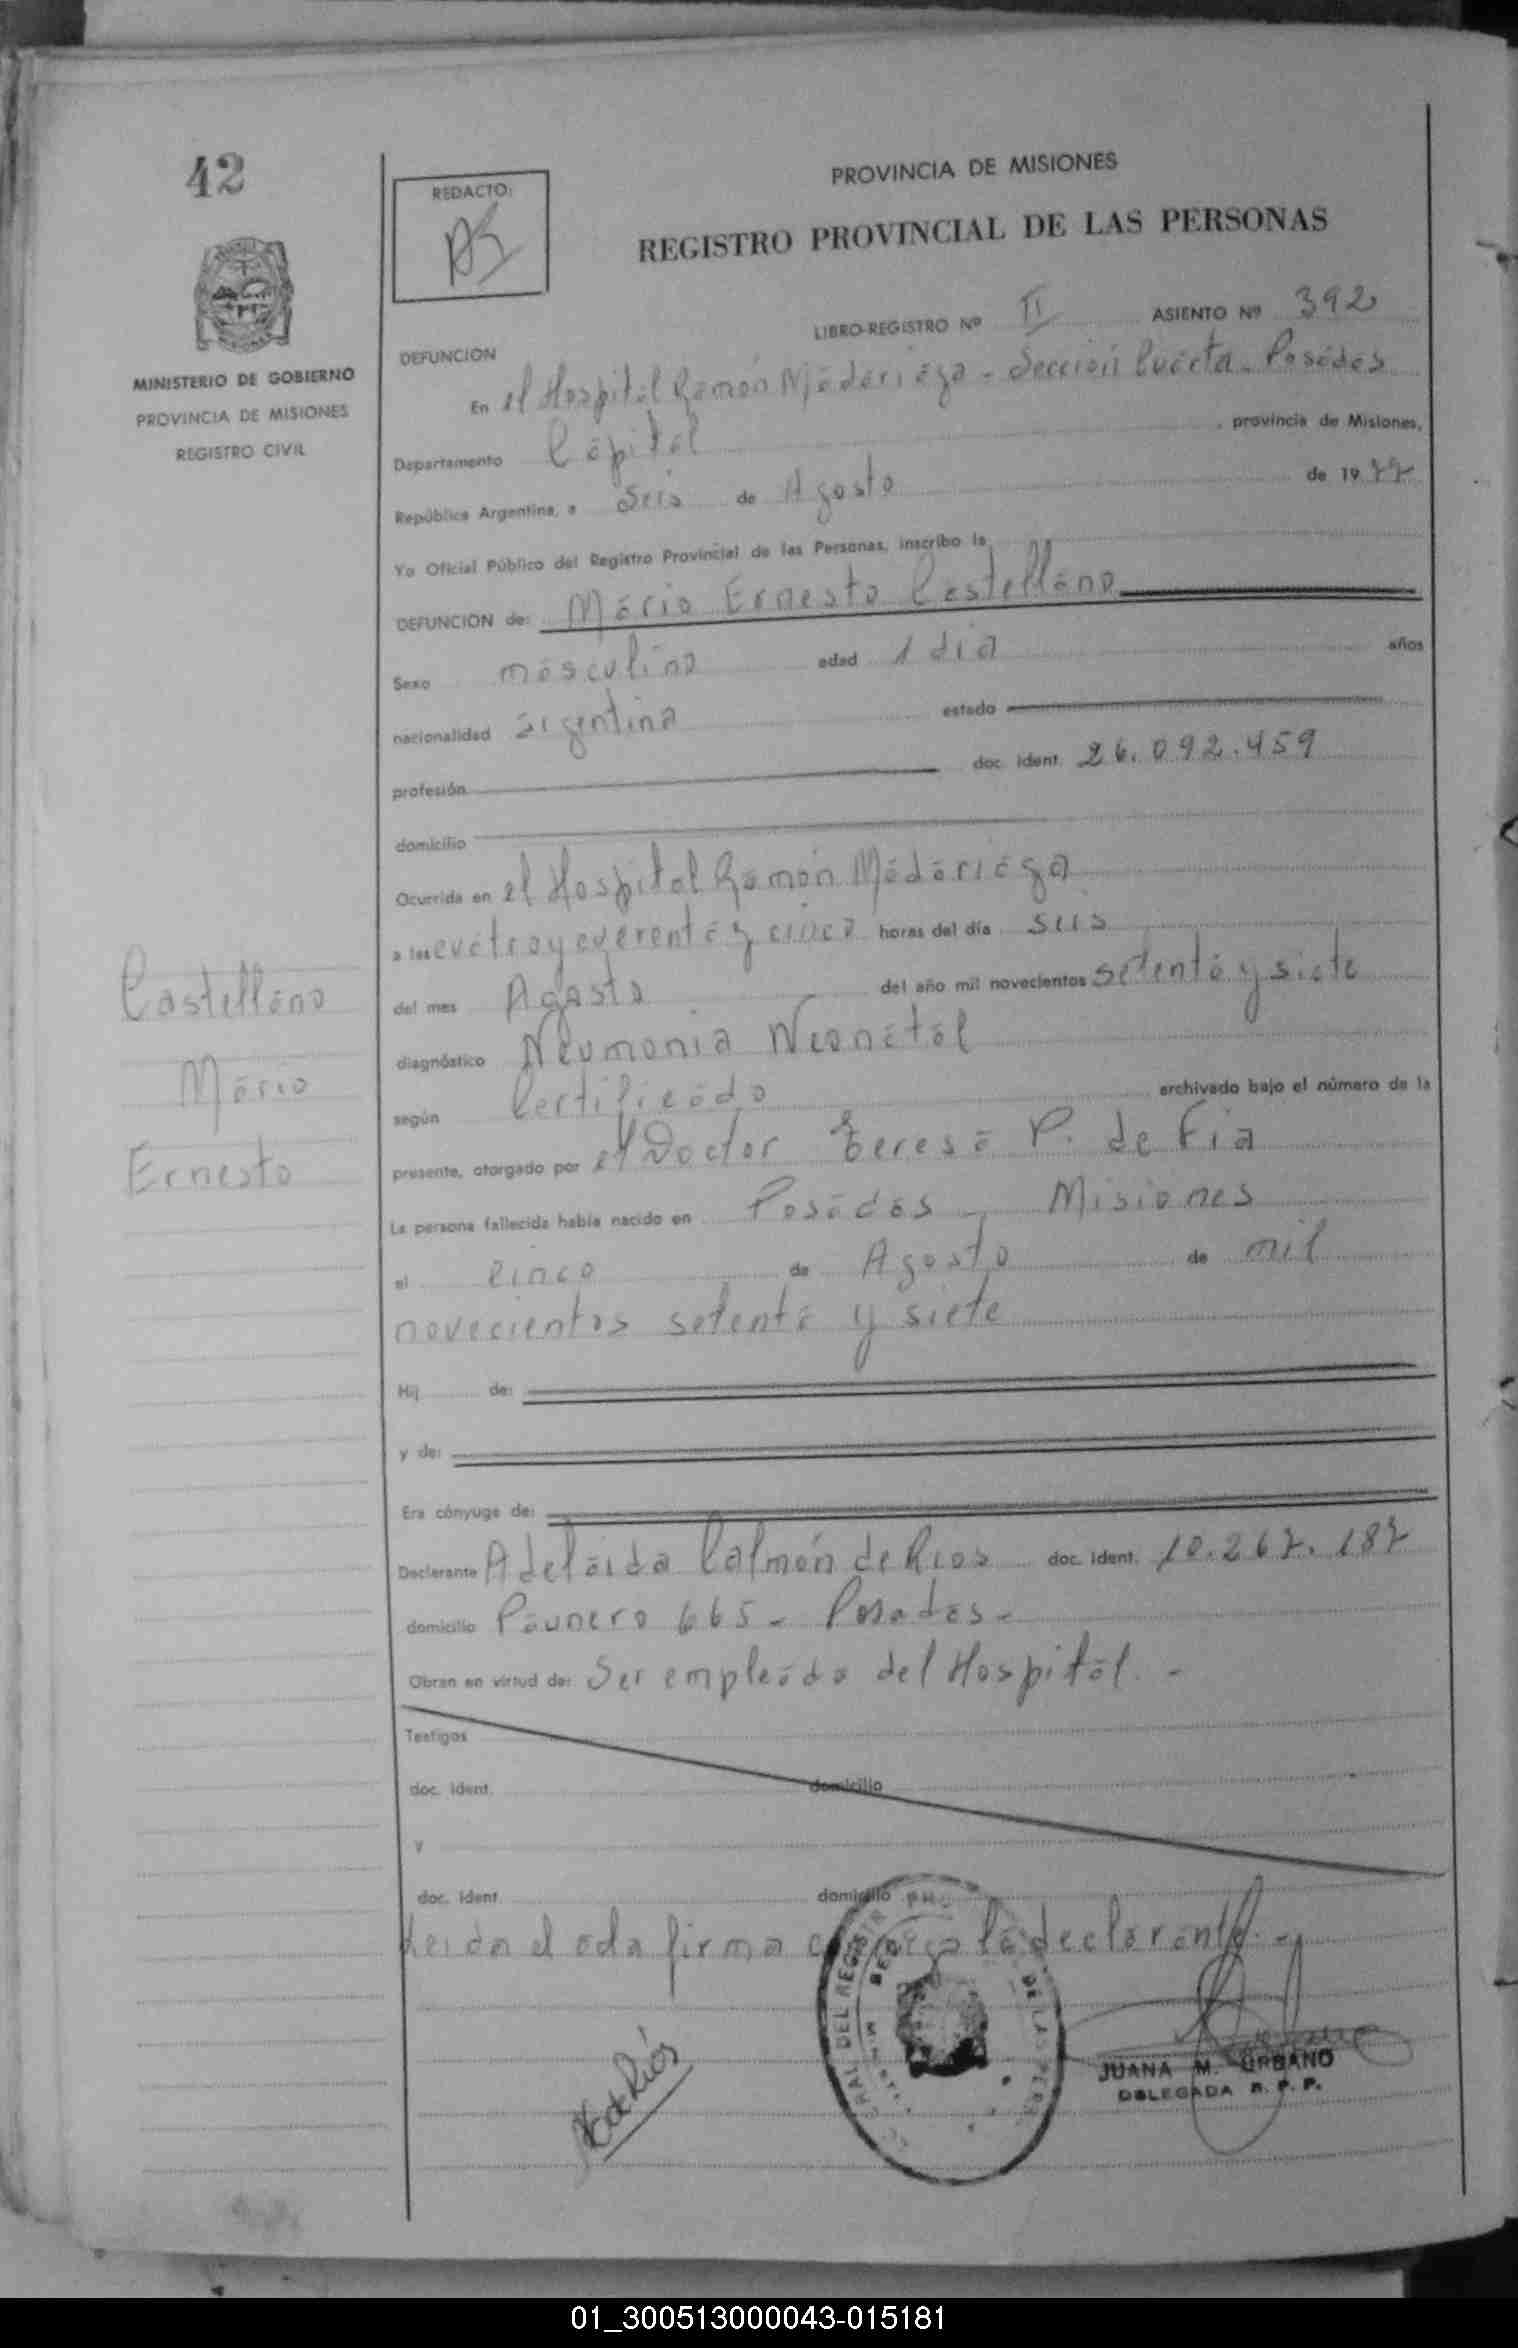 42
REDACTO:
PROVINCIA DE MISIONES
REGISTRO PROVINCIAL DE LAS PERSONAS
MINISTERIO DE GOBIERNO
PROVINCIA DE MISIONES
REGISTRO CIVIL
LIBRO-REGISTRO Nº II ASIENTO Nº 392
DEFUNCION
En el Hospital Ramón Madariaga - Sección Cuarta - Posadas
Departamento Capital, provincia de Misiones,
República Argentina, a Seis de Agosto de 1977
Yo Oficial Público del Registro Provincial de las Personas, inscribo la
DEFUNCION de: Mario Ernesto Castellano
Sexo masculino edad 1 dia años
nacionalidad argentina estado
profesión doc. ident. 26.092.459
domicilio
Ocurrida en el Hospital Ramón Madariaga
a las cuatro y cuarenta y cinco horas del día seis
del mes Agosto del año mil novecientos setenta y siete
diagnóstico Neumonia Neonatal
según Certificado archivado bajo el número de la
presente, otorgado por el Doctor Teresa P. de Fia
La persona fallecida había nacido en Posadas - Misiones
el cinco de Agosto de mil
novecientos setenta y siete
Hij de:
y de:
Era cónyuge de:
Declarante Adelaida Calmón de Rios doc. ident. 10.267.187
domicilio Paunero 665 - Posadas -
Obran en virtud de: Ser empleada del Hospital. -
Testigos
doc. ident. domicilio
y
doc. ident. domicilio
Leida el acta firma conmigo la declarante. -
Castellano
Mario
Ernesto
DEL REGISTR
DE LAS PERS
de Rios
JUANA M. URBANO
DELEGADA R. P. P.
01_300513000043-015181